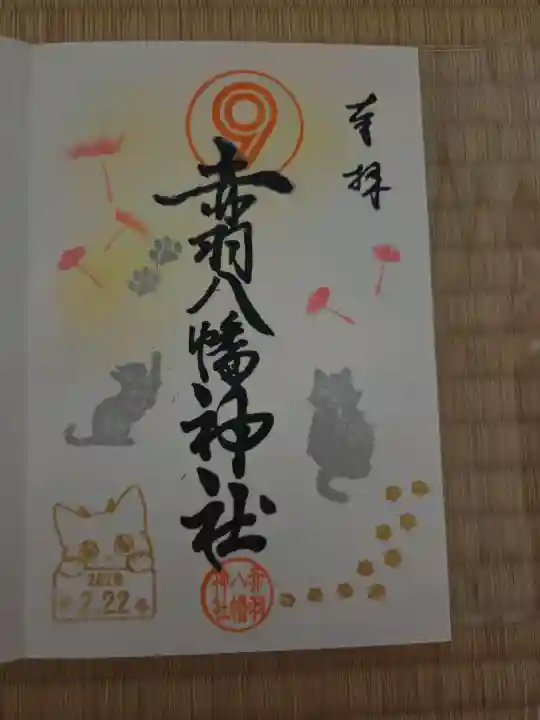 奉拝
赤羽八幡神社
9
2020
2.22
赤羽
八幡
神社